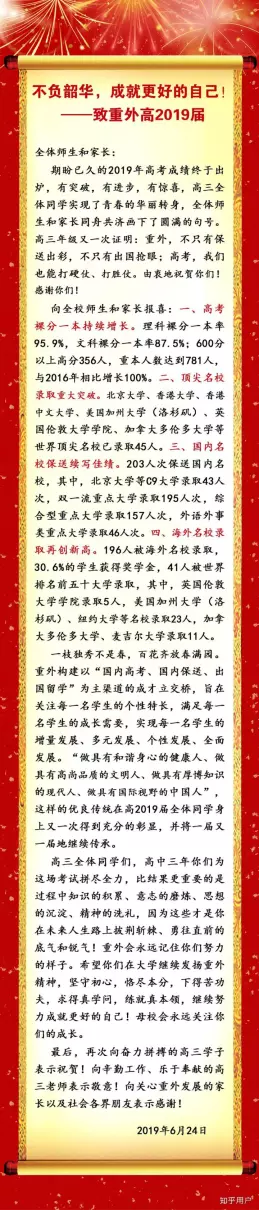 不负韶华，成就更好的自己！
——致重外高2019届
全体师生和家长：
期盼已久的2019年高考成绩终于出
炉，有突破，有进步，有惊喜，高三全
体同学实现了青春的华丽转身，全体师生
和家长同舟共济画下了圆满的句号。
高三年级又一次证明：重外，不只有保
送出彩，不只有出国抢眼；高考，我们
也能打硬仗、打胜仗。由衷地祝贺你们！
感谢你们！
向全校师生和家长报喜：一、高考
裸分一本持续增长。理科裸分一本率
95.9%，文科裸分一本率87.5%；600分
以上高分356人，重本人数达到781人，
与2016年相比增长100%。二、顶尖名校
录取重大突破。北京大学、香港大学、香港
中文大学、美国加州大学（洛杉矶）、英
国伦敦大学学院、加拿大多伦多大学等
世界顶尖名校已录取45人。三、国内名
校保送续写佳绩。203人次保送国内名
校，其中，北京大学等C9大学录取43人
次，双一流重点大学录取195人次，综
合型重点大学录取157人次，外语外事
类重点大学录取46人次。四、海外名校录
取再创新高。196人被海外名校录取，
30.6%的学生获得奖学金，41人被世界
排名前五十大学录取，其中，英国伦敦
大学学院录取5人，美国加州大学（洛
杉矶）、纽约大学等名校录取23人，加拿
大多伦多大学、麦吉尔大学录取11人。
一枝独秀不是春，百花齐放春满园。
重外构建以“国内高考、国内保送、出
国留学”为主渠道的成才立交桥，旨在
关注每一名学生的个性特长，满足每一
名学生的成长需要，实现每一名学生的
增量发展、多元发展、个性发展、全面
发展。“做具有和谐身心的健康人、做
具有高尚品质的文明人、做具有厚博知识
的现代人、做具有国际视野的中国人”，
这样的优良传统在高2019届全体同学身
上又一次得到充分的彰显，并将一届又
一届地继续传承。
高三全体同学们，高中三年你们为
这场考试拼尽全力，比结果更重要的是
过程中知识的积累、意志的磨炼、思想
的沉淀、精神的洗礼，因为这些才是你
在未来人生路上披荆斩棘、勇往直前的
底气和锐气！重外会永远记住你们努力
的样子。希望你们在大学继续发扬重外
精神，坚守初心，恪尽本分，下得苦功
夫，求得真学问，练就真本领，继续努
力成就更好的自己！母校会永远关注你
们的成长。
最后，再次向奋力拼搏的高三学子
表示祝贺！向辛勤工作、乐于奉献的高
三老师表示敬意！向关心重外发展的家
长以及社会各界朋友表示感谢！
2019年6月24日
知乎用户